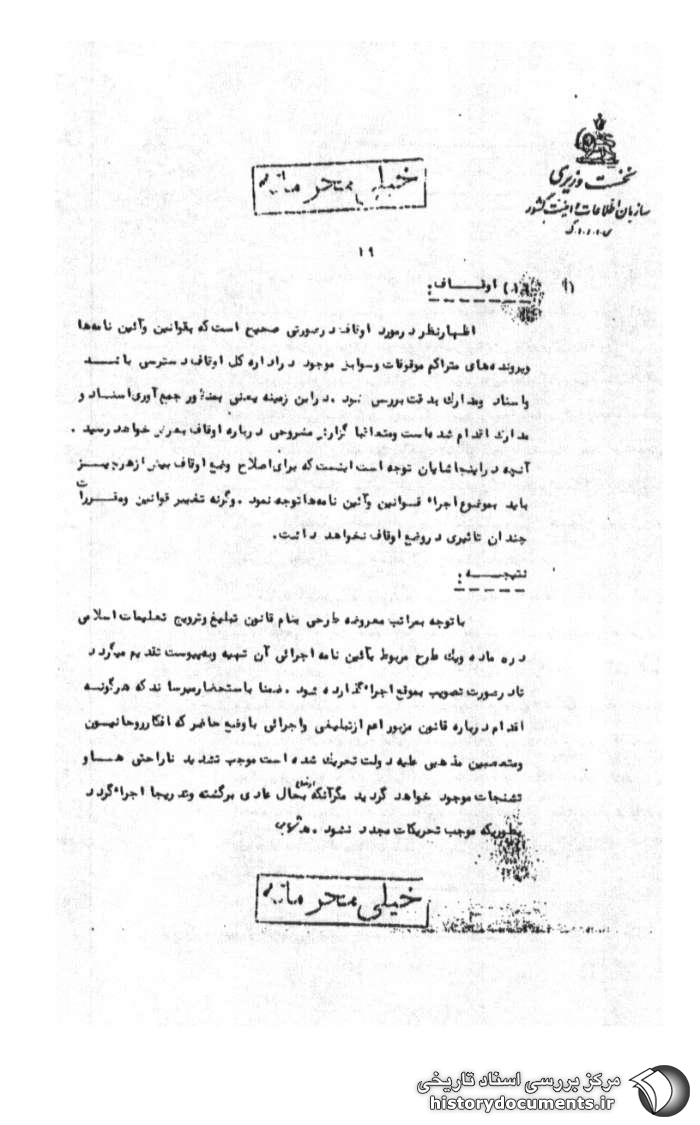 نخست وزیری
سازمان اطلاعات و امنیت کشور
س.ا.و.ا.ک
خیلی محرمانه
۱۹
۱۶) اوقـــاف:
اظهارنظر درمورد اوقاف درصورتی صحیح است که بقوانین وآئین نامه‌ها
وپرونده‌های متراکم موقوفات وسوابق موجود در اداره کل اوقاف دسترسی باشـــد
واسناد ومدارک بدقت بررسی شود .دراین زمینه یعنی بمنظور جمع آوری اسناد و
مدارک اقدام شده است ومتعاقبا گزارش مشروحی درباره اوقاف بعرض خواهد رسید .
آنچه دراینجا شایان توجه است اینست که برای اصلاح وضع اوقاف بیش از هرچیـــز
باید بموضوع اجراء قـوانین وآئین نامه‌ها توجه نمود .وگرنه تغییر قوانین ومقـــررات
چندان تاثیری دروضع اوقاف نخواهد داشت.
نتیجـــه:
باتوجه بمراتب معروضه طرحی بنام قانون تبلیغ وترویج تعلیمات اسلامی
در ۵ ماده ویک طرح مربوط بآئین نامه اجرائی آن تهیه وبه‌پیوست تقدیم میگردد
تادرصورت تصویب بموقع اجراءگذارده شود .ضمنا باستحضارمیرساند که هرگونـــه
اقدام درباره قانون مزبور اعم ازتبلیغی واجرائی باوضع حاضر که افکارروحانیـــون
ومتعصبین مذهبی علیه دولت تحریک شده است موجب تشدید ناراحتی هـــا و
تشنجات موجود خواهد گردید مگرآنکه اوضاع بحال عادی برگشته وتدریجا اجراءگردد
بطوریکه موجب تحریکات مجدد نشود .
خیلی محرمانه
مرکز بررسی اسناد تاریخی
historydocuments.ir